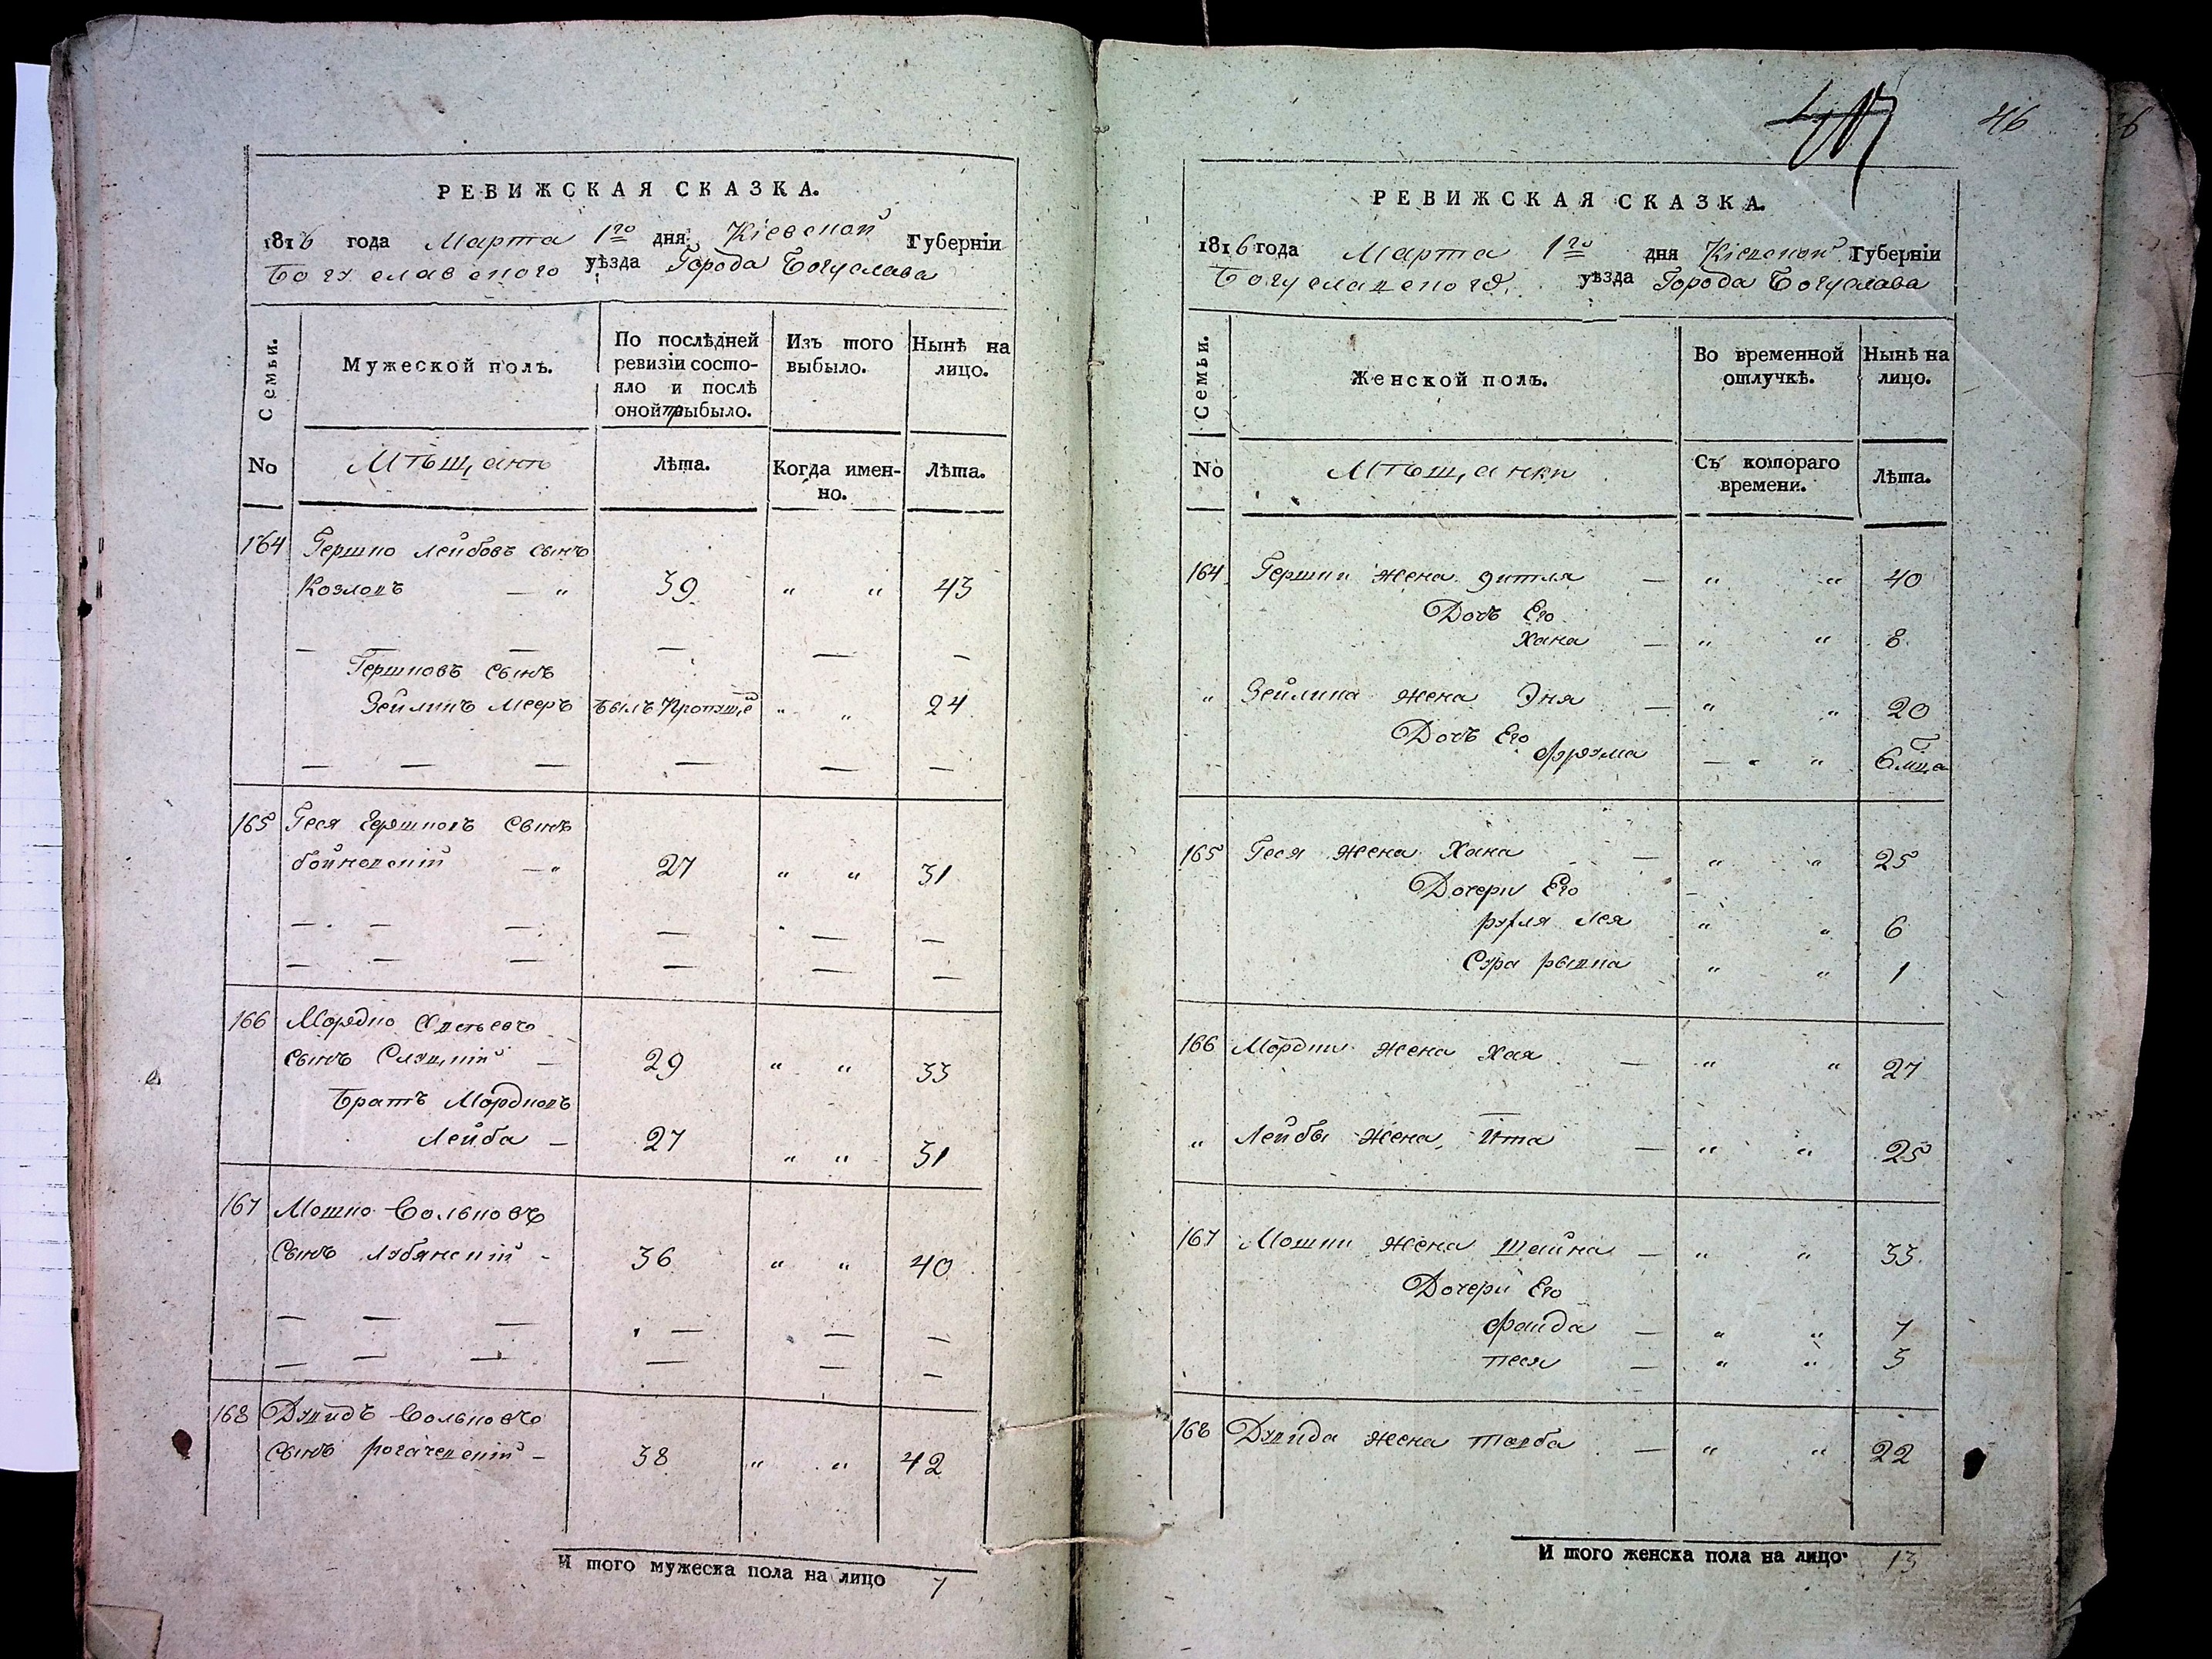 РЕВИЖСКАЯ СКАЗКА.
1816 года Марта 1го дня Кіевской Губерніи
Богуславского уѣзда Города Богуслава
Семьи.
Мужеской полъ.
По послѣдней ревизіи состо-
яло и послѣ
оной прибыло.
Изъ того
выбыло.
Нынѣ на
лицо.
No
Мѣщанъ
Лѣта.
Когда имен-
но.
Лѣта.
164 Гершко Лейбовъ сынъ
Козловъ — „ 39 „ „ 43
— — — — —
Гершковъ сынъ
Зейликъ Мееръ былъ „ „ 24
— — — — — —
165 Геся Гершковъ сынъ
бойковскій — „ 27 „ „ 31
— — — — — —
— — — — — —
166 Мордко
сынъ Слуцкій — 29 „ „ 33
Братъ Мордковъ
Лейба — 27 „ „ 31
167 Мошко Вольковъ
сынъ Лубянскій - 36 „ „ 40
— — — — — —
— — — — — —
168 Дувидъ Вольковъ
сынъ рогачевскій - 38 „ „ 42
И того мужеска пола на лицо 7
46
РЕВИЖСКАЯ СКАЗКА.
1816 года Марта 1го дня Кіевской Губерніи
Богуславского уѣзда Города Богуслава
Семьи.
Женской полъ.
Во временной
отлучкѣ.
Нынѣ на
лицо.
No
Мѣщанки
Съ котораго
времени.
Лѣта.
164 Гершки жена эитля — „ „ 40
Дочь Его
Хана — „ „ 8
„ Зейлика жена Эня — „ „ 20
Дочь Его
Фрума — „ „ 6 мца
165 Геся жена Хана — „ „ 25
Дочери Его
Лея „ „ 6
Сура рывка „ „ 1
166 Мордки жена Хая — „ „ 27
„ Лейбы жена Ита — „ „ 25
167 Мошки жена Шейна — „ „ 33
Дочери Его
Фейда — „ „ 7
песя — „ „ 3
168 Дувида жена товба — „ „ 22
И того женска пола на лицо 13